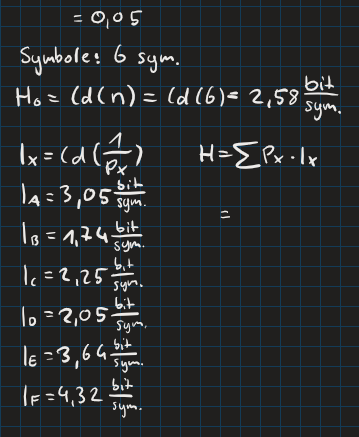 = 0,05
Symbole: 6 sym.
H₀ = ld(n) = ld(6) = 2,58 bit/sym.
Iₓ = ld(1/Pₓ) H = ∑ Pₓ · Iₓ
I_A = 3,05 bit/sym. =
I_B = 1,74 bit/sym.
I_C = 2,25 bit/sym.
I_D = 2,05 bit/sym.
I_E = 3,64 bit/sym.
I_F = 4,32 bit/sym.